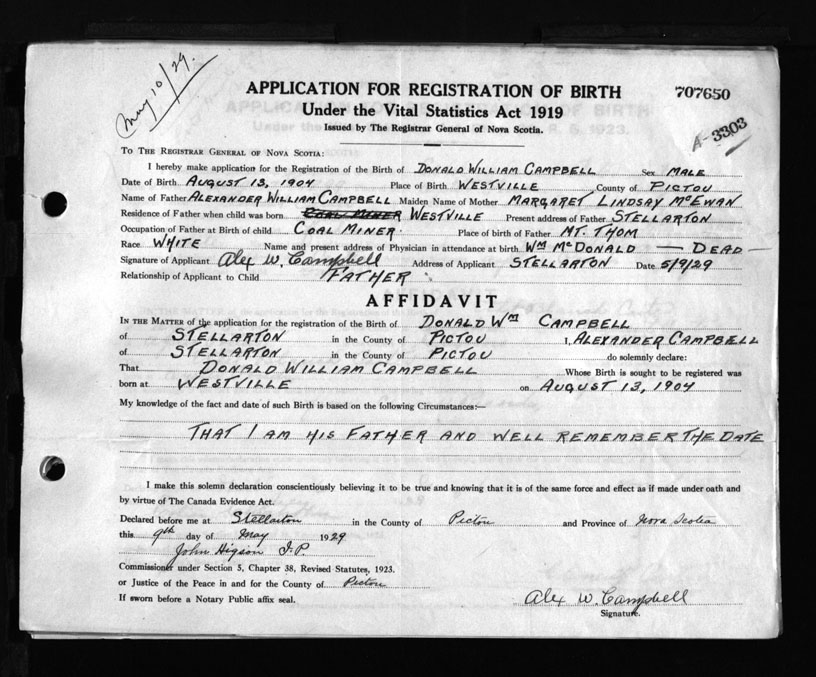 May 10/29.
APPLICATION FOR REGISTRATION OF BIRTH
707650
Under the Vital Statistics Act 1919
A-3303
Issued by The Registrar General of Nova Scotia.
To The Registrar General of Nova Scotia:
I hereby make application for the Registration of the Birth of DONALD WILLIAM CAMPBELL Sex MALE
Date of Birth AUGUST 13, 1904 Place of Birth WESTVILLE County of PICTOU
Name of Father ALEXANDER WILLIAM CAMPBELL Maiden Name of Mother MARGARET LINDSAY McEWAN
Residence of Father when child was born COAL MINER WESTVILLE Present address of Father STELLARTON
Occupation of Father at Birth of child COAL MINER. Place of birth of Father MT. THOM
Race WHITE Name and present address of Physician in attendance at birth Wm McDONALD — DEAD —
Signature of Applicant Alex W. Campbell Address of Applicant STELLARTON Date 5/9/29
Relationship of Applicant to Child FATHER
AFFIDAVIT
In the Matter of the application for the registration of the Birth of DONALD Wm CAMPBELL
of STELLARTON in the County of PICTOU I, ALEXANDER CAMPBELL
of STELLARTON in the County of PICTOU do solemnly declare:
That DONALD WILLIAM CAMPBELL Whose Birth is sought to be registered was
born at WESTVILLE on AUGUST 13, 1904
My knowledge of the fact and date of such Birth is based on the following Circumstances:—
THAT I AM HIS FATHER AND WELL REMEMBER THE DATE
I make this solemn declaration conscientiously believing it to be true and knowing that it is of the same force and effect as if made under oath and
by virtue of The Canada Evidence Act.
Declared before me at Stellarton in the County of Pictou and Province of Nova Scotia
this 9th day of May 1929
John Higson J.P.
Commissioner under Section 5, Chapter 38, Revised Statutes, 1923.
or Justice of the Peace in and for the County of Pictou
If sworn before a Notary Public affix seal.
Alex W. Campbell
Signature.